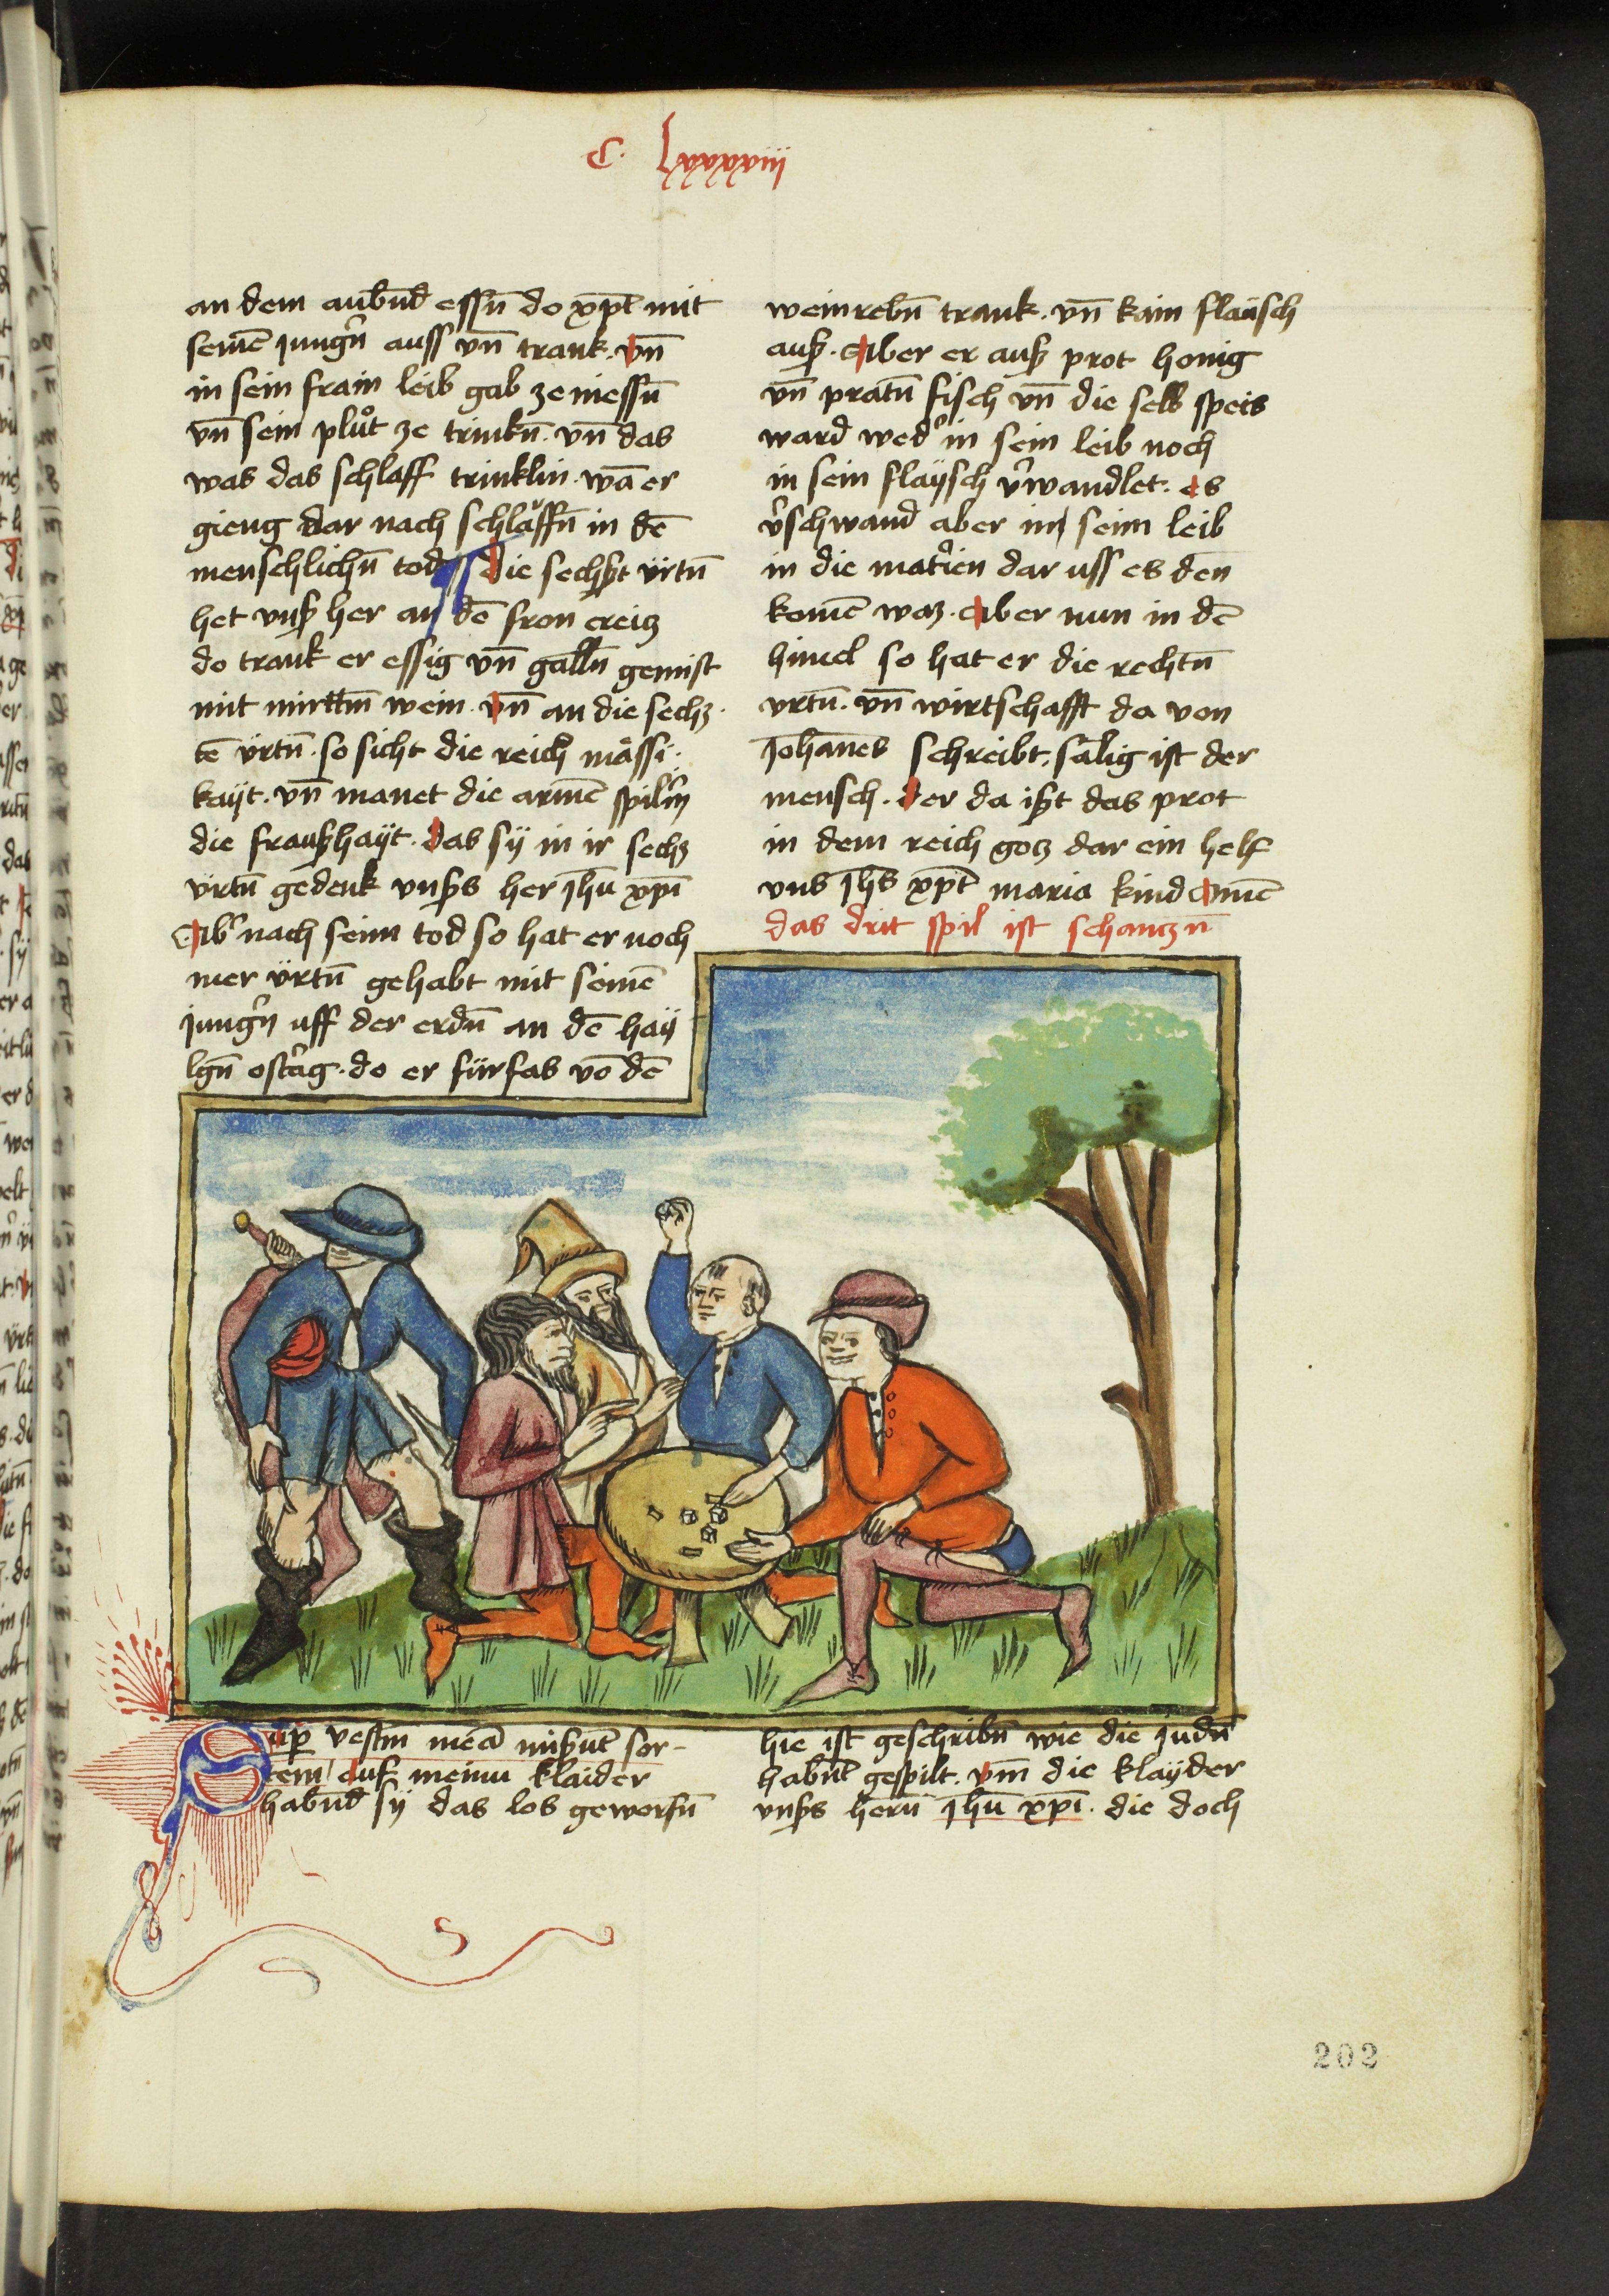 C. lxxxxviij
an dem aubnd̄ essn̄ do xp̄t mit
seinē jungr̄n auss vn̄ trank. vn̄
in sein frain leib gab ze niessn̄
vn̄ sein plůt ze trinkn̄. vn̄ das
was das schlaff trinklin. wā er
gieng dar nach schlauffn̄ in dē
menschlichn̄ tod die sechst ürtn̄
het vnß her an dē fron creitz
do trank er essig vn̄ galln̄ gemist
mit mirttm̄ wein. vn̄ an die sechz
tē ürtn̄. so sicht die reich mässi
kayt. vn̄ manet die armē spilr̄n
die fraußhayt. das sy in ir sechz
ürtn̄ gedenk vnßs her jhū xp̄i
Ab̄ nach seim tod so hat er noch
mer ürtn̄ gehabt mit seinē
jungr̄n uff der erdn̄ an dē hay
lgn̄ ostr̄tag. do er fürsas vō dē
weinrebn̄ trank. vn̄ kain flaüsch
auß. Aber er auß prot honig
vn̄ pratn̄ fisch vn̄ die selb speis
ward wed̄ in sein leib noch
in sein flaÿsch v̄wandlet. es
v̄schwand aber in seim leib
in die materien dar uss es den
komē waz. Aber nun in dē
himel so hat er die rechtn̄
vrtn̄. vn̄ wirtschafft da von
Johānes schreibt. sälig ist der
mensch. der da ißt das prot
in dem reich gotz dar ein helf
vns jhs̄ xp̄t maria kind Amē
das drit spil ist schantzn̄
Sup̄ vestm̄ meā mißut̄ sor-
tem / Auf meinu klaider
habnd̄ sy das los geworfn̄
hie ist geschribn̄ wie die judn̄
habnt̄ gespilt. vm̄ die klayder
vnßs hern̄ jhū xp̄i. die doch
202